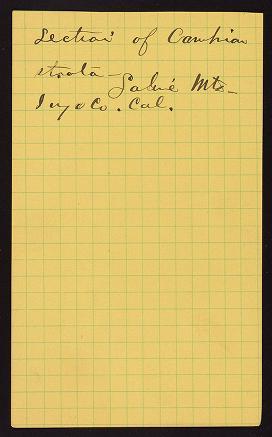 Section of Cambrian
strata - Saline Mts -
Inyo Co. Cal.